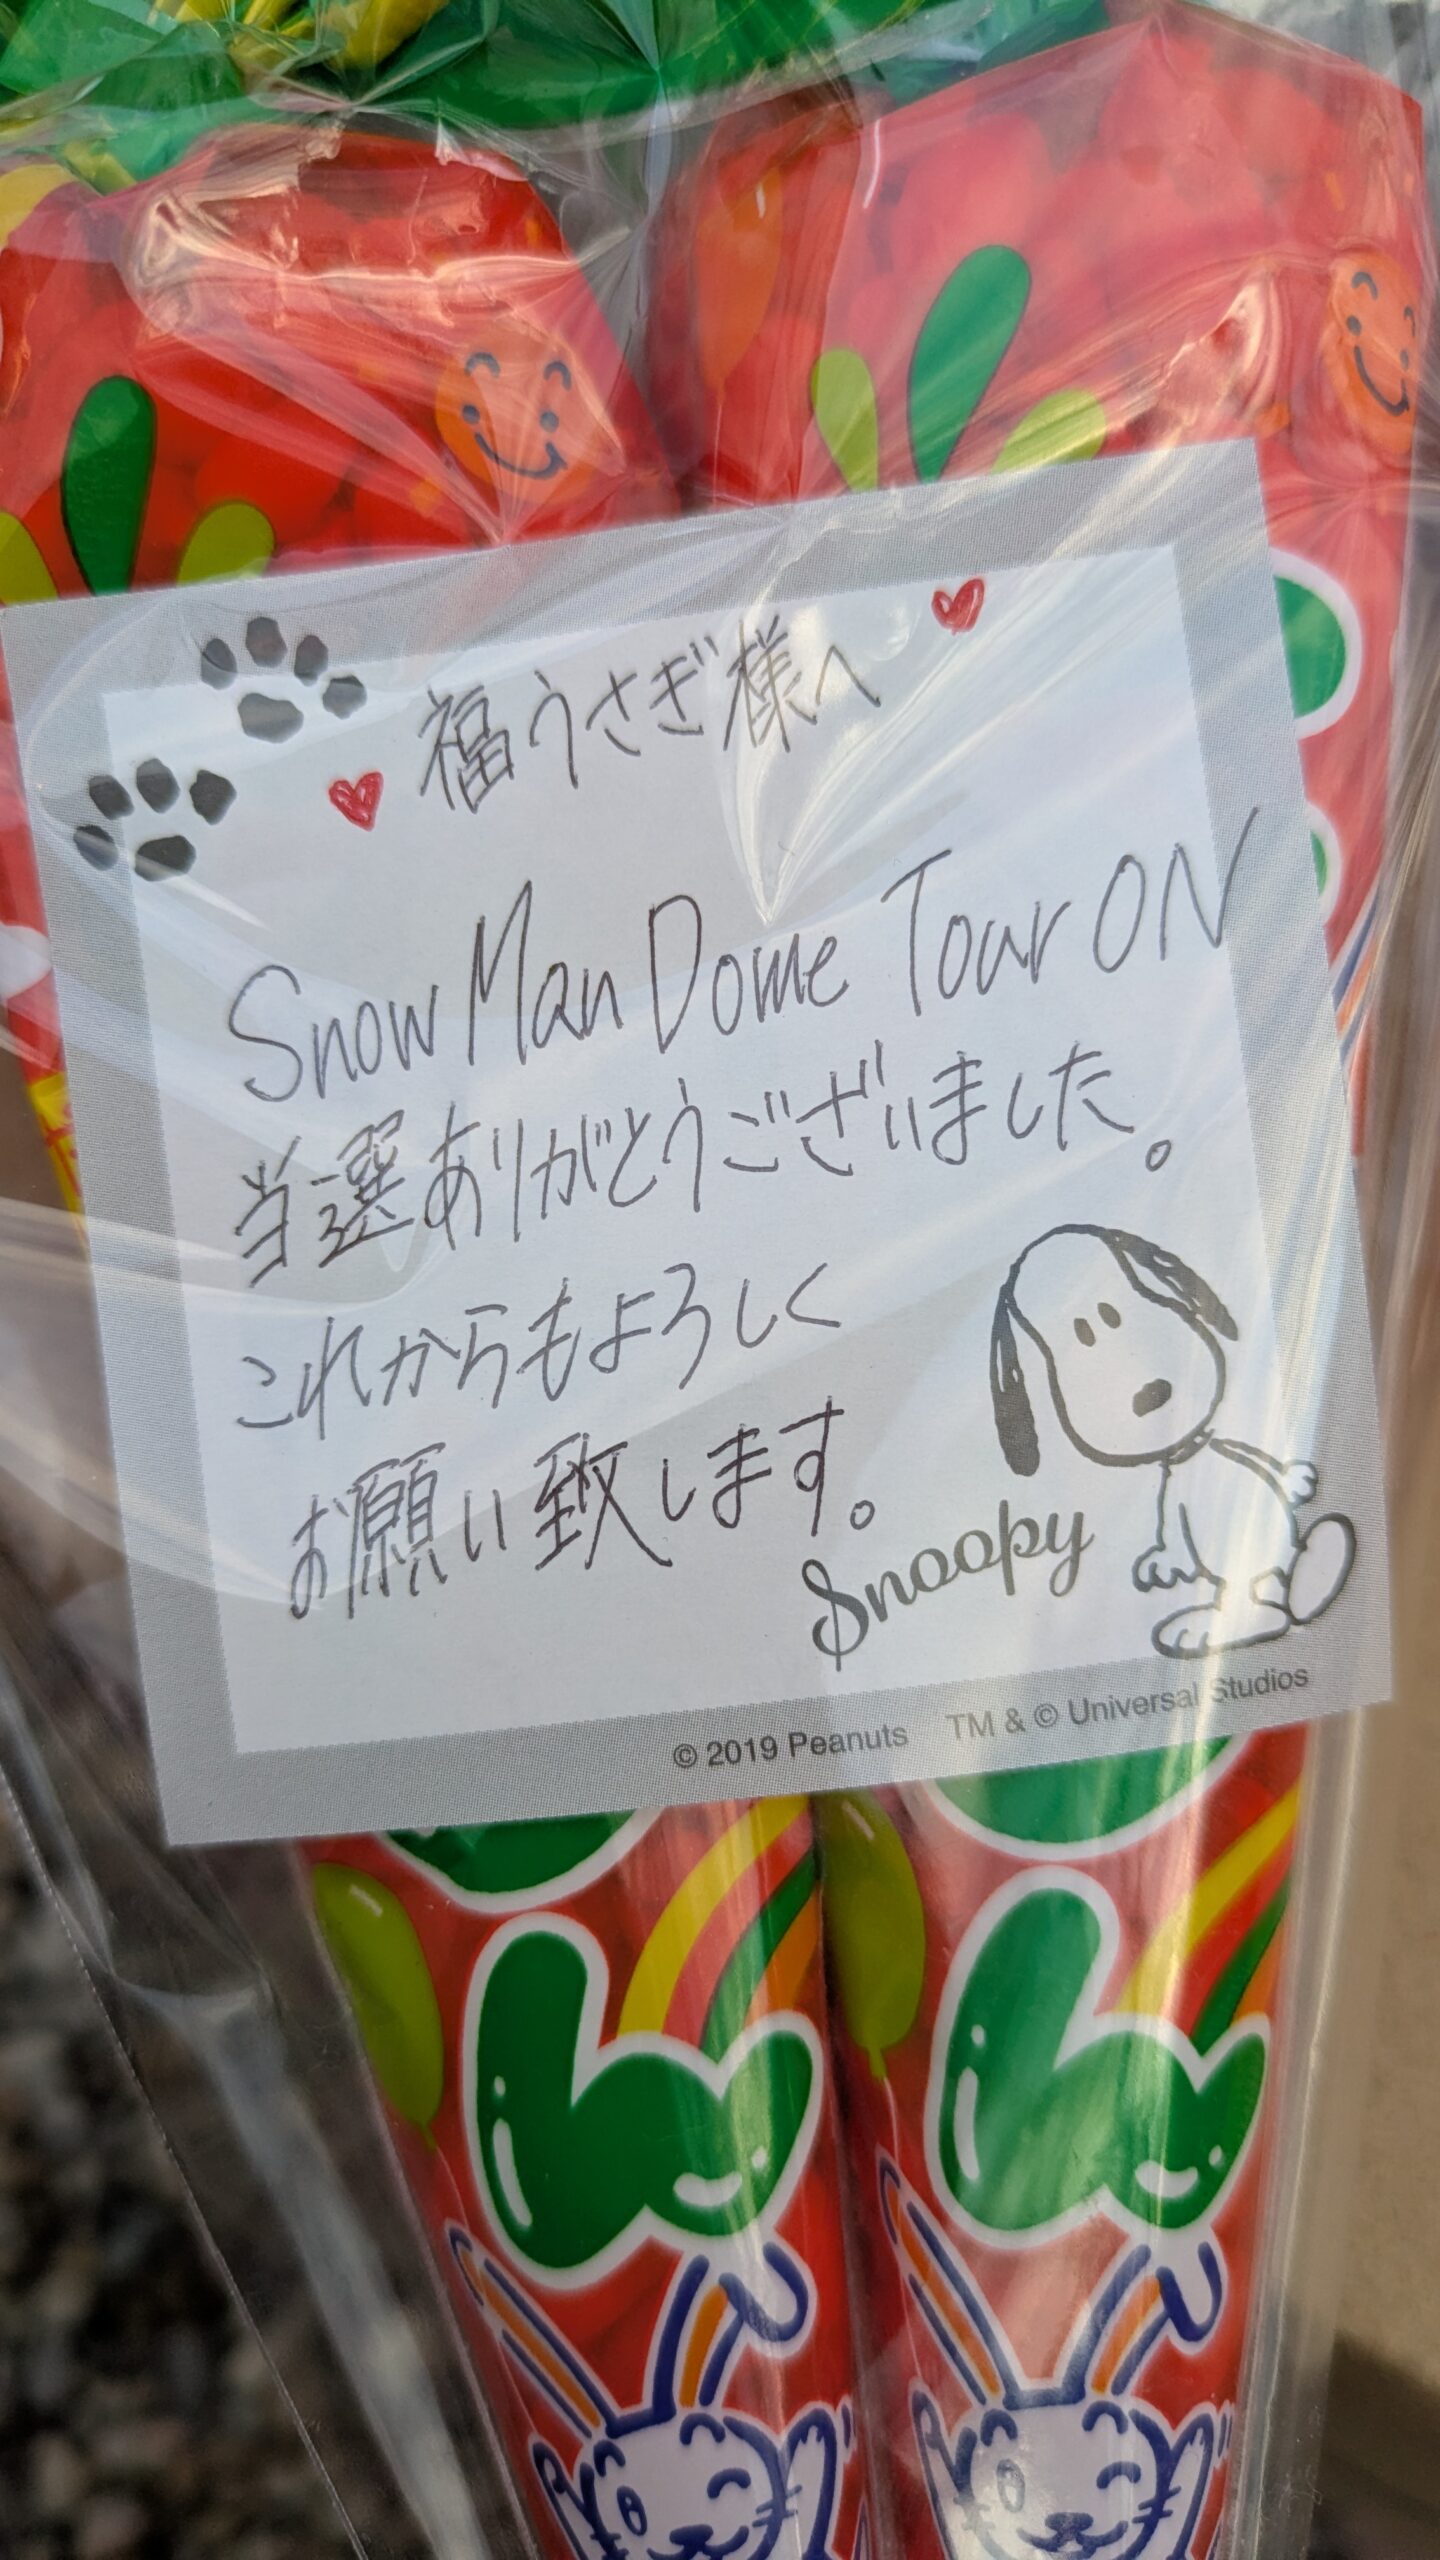 福うさぎ様へ
Snow Man Dome Tour ON
当選ありがとうございました。
これからもよろしく
お願い致します。
Snoopy
© 2019 Peanuts TM & © Universal Studios